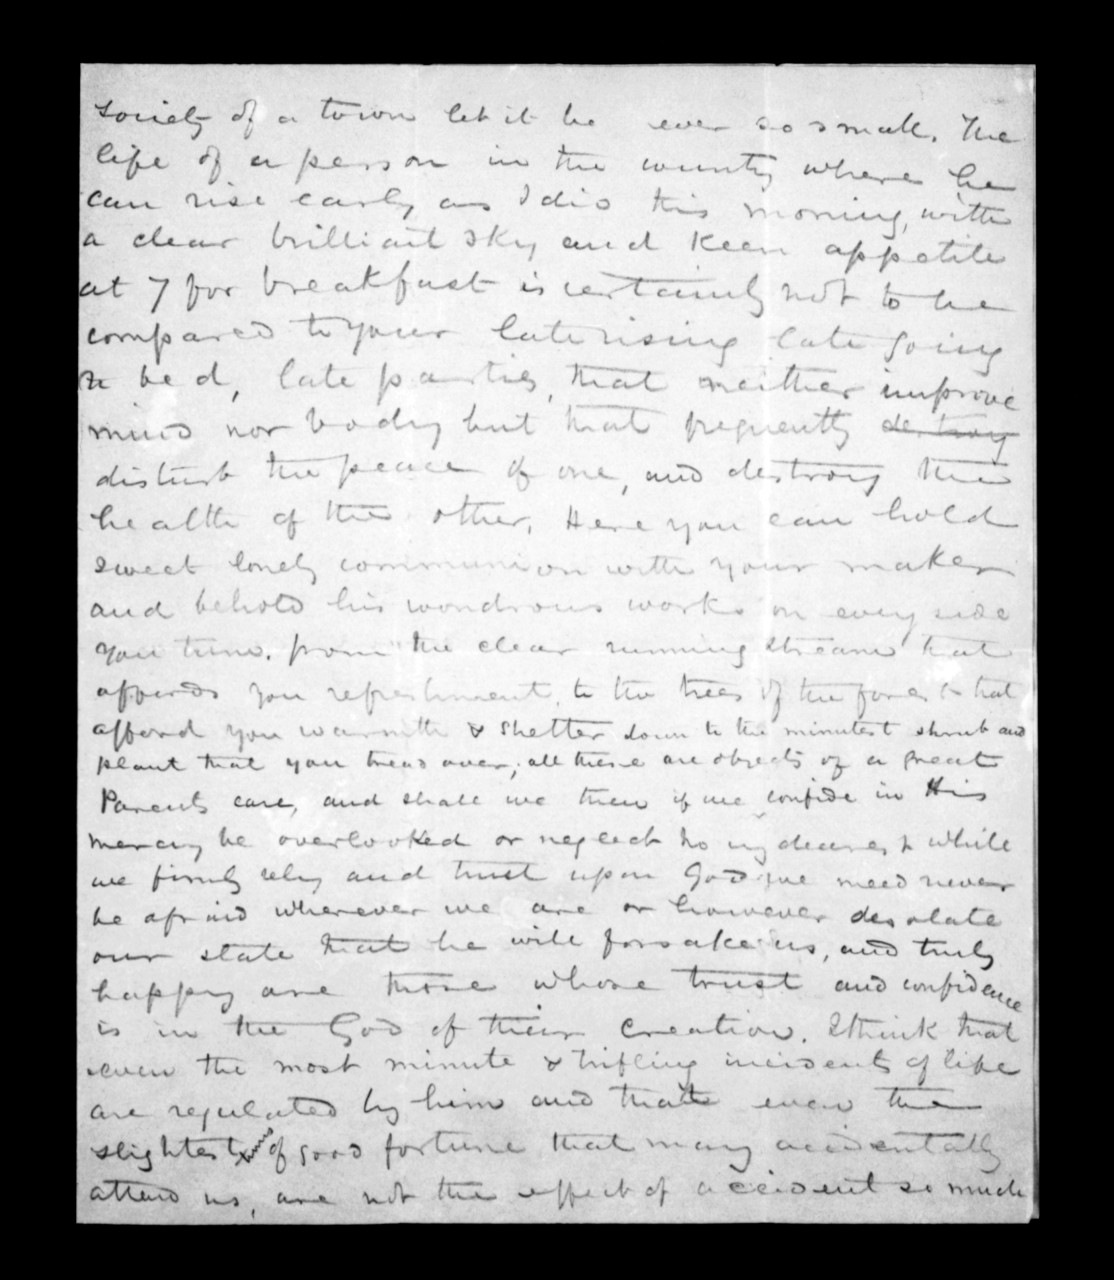 Society of a town let it be ever so small. The
life of a person in the country where he
can rise early as I did this morning, with
a clear brilliant sky and keen appetite
at 7 for breakfast is certainly not to be
compared to your late rising late going
to bed, late parties, that neither improve
mind nor body but that frequently destroy
disturb the peace of one, and destroy the
health of the other. Here you can hold
sweet lonely communion with your maker
and behold his wondrous works on every side
you turn. from the clear running stream that
affords you refreshment, to the trees of the forest that
afford you warmth & shelter down to the minutest shrub and
plant that you tread over; all these are objects of a great
Parents care, and shall we then if we confide in His
mercy be overlooked or neglect no my dearest while
we firmly rely and trust upon God we need never
be afraid wherever we are or however desolate
our state that he will forsake us, and truly
happy are those whose trust and confidence
is in the God of their Creation. I think that
even the most minute & trifling incidents of life
are regulated by him and that even the
slightest of good fortune that may accidentally
attend us, are not the effect of accident so much